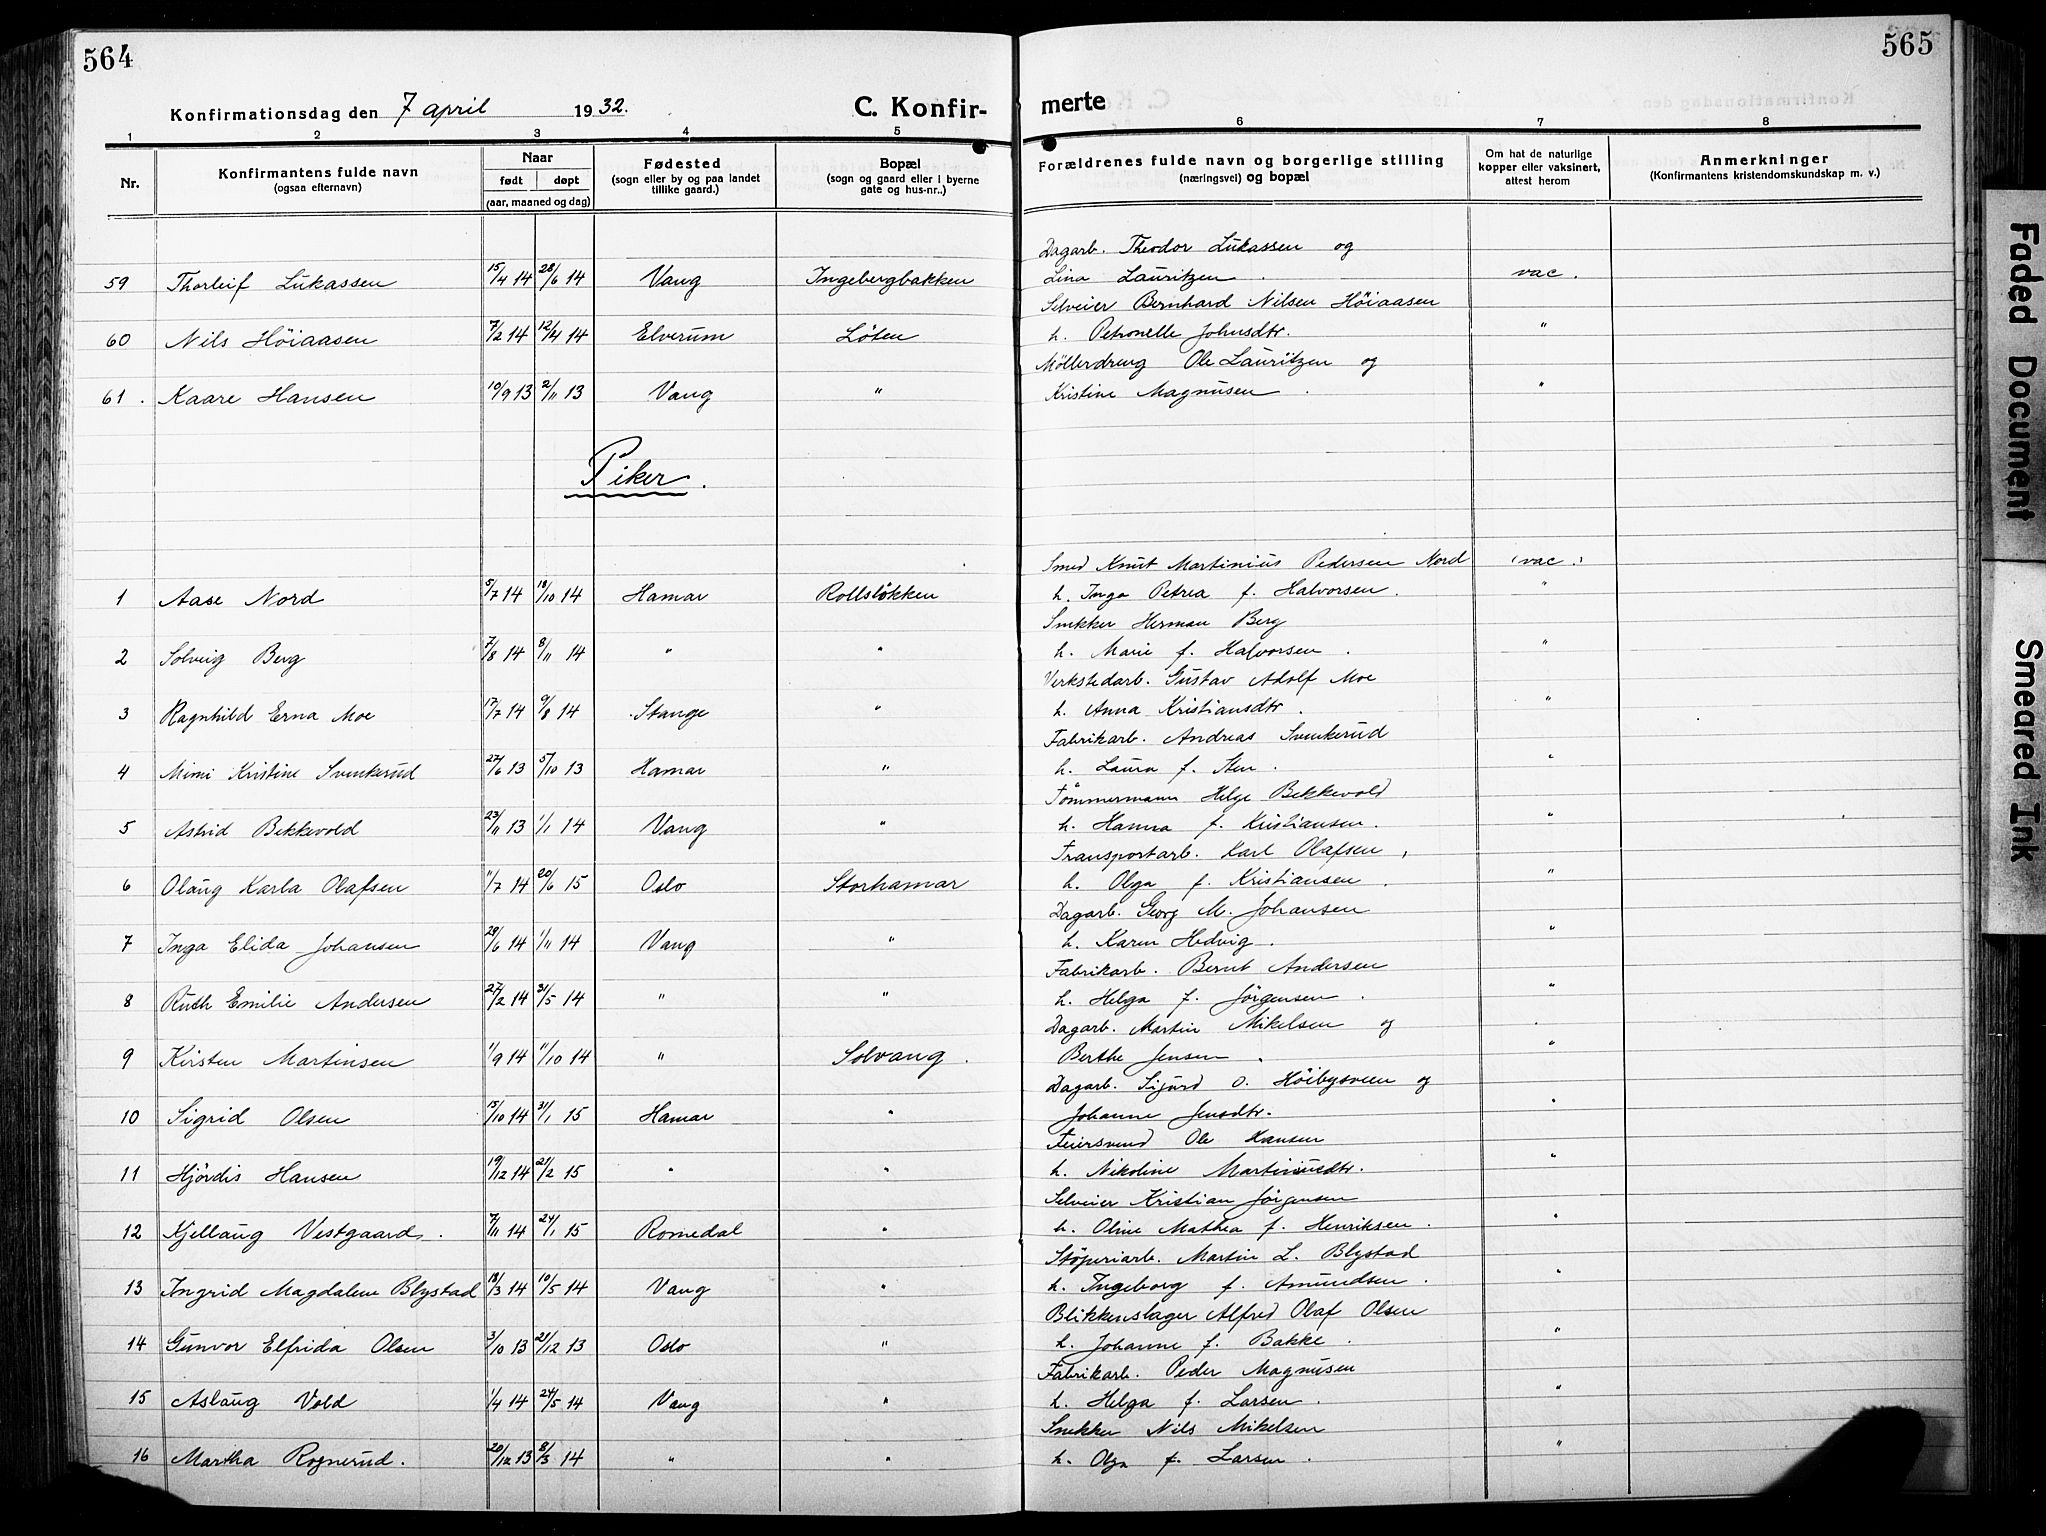 564
565
Konfirmationsdag den 7 april 1932.
C. Konfir-
merte
1 2 3 4 5 6 7 8
Nr.
Konfirmantens fulde navn
(ogsaa efternavn)
Naar
født døpt
(aar, maaned og dag)
Fødested
(sogn eller by og paa landet
tillike gaard.)
Bopæl
(sogn og gaard eller i byerne
gate og hus-nr..)
Forældrenes fulde navn og borgerlige stilling
(næringsvei) og bopæl
Om hat de naturlige
kopper eller vaksinert,
attest herom
Anmerkninger
(Konfirmantens kristendomskundskap m. v.)
Dagarb. Theodor Lukassen og
59 Thorleif Lukassen 15/4 14 28/6 14 Vang Ingebergbakken Lina Lauritzen . vac.
Selveier Bernhard Nilsen Höiaasen
60 Nils Höiaasen 7/2 14 12/4 14 Elverum Löten h. Petronelle Johnsdtr. "
Möllerdreng Ole Lauritzen og
61. Kaare Hansen 10/9 13 2/11 13 Vang " Kristine Magnusen . "
Piker.
Smed Knut Martinius Pedersen Nord vac.
1 Aase Nord 5/7 14 18/10 14 Hamar Rollslökken h. Inga Petrea f. Halvorsen. "
Snekker Herman Berg
2 Solveig Berg 7/8 14 8/11 14 " " h. Marie f. Halvorsen. "
Verkstedarb. Gustav Adolf Moe
3 Ragnhild Erna Moe 17/7 14 9/8 14 Stange " h. Anna Kristiansdtr. "
Fabrikarb. Andreas Svenkerud
4 Mimi Kristine Svenkerud 27/6 13 5/10 13 Hamar " h. Laura f. Sten. "
Tömmermann Helge Bekkevold
5 Astrid Bekkevold 23/11 13 1/1 14 Vang " h. Hanna f. Kristiansen. "
Transportarb. Karl Olafsen,
6 Olaug Karla Olafsen 11/7 14 20/6 15 Oslo Storhamar h. Olga f. Kristiansen. "
Dagarb. Georg M. Johansen
7 Inga Elida Johansen 28/6 14 1/11 14 Vang " h. Karen Hedvig. "
Fabrikarb. Bernt Andersen
8 Ruth Emilie Andersen 27/2 14 31/5 14 " " h. Helga f. Jörgensen. "
Dagarb. Martin Mikelsen og
9 Kirsten Martinsen 1/9 14 11/10 14 " Solvang. Berthe Jensen. "
Dagarb. Sigurd O. Höibysveen og
10 Sigrid Olsen 15/10 14 31/1 15 Hamar " Johanne Jensdtr. "
Feiersvend Ole Hansen
11 Hjördis Hansen 19/12 14 21/2 15 " " h. Nikoline Martinusdtr. "
Selveier Kristian Jörgensen
12 Kjellaug Vestgaard. 7/11 14 24/1 15 Romedal " h. Oline Mathea f. Henriksen. "
Stöperiarb. Martin L. Blystad
13 Ingrid Magdalene Blystad 18/3 14 10/5 14 Vang " h. Ingeborg f. Amundsen. "
Blikkenslager Alfred Olaf Olsen
14 Gunvor Elfrida Olsen 3/10 13 21/12 13 Oslo " h. Johanne f. Bakke. "
Fabrikarb. Peder Magnusen
15 Aslaug Vold 1/4 14 24/5 14 Vang " h. Helga f. Larsen. "
Snekker Nils Mikelsen
16 Martha Rognerud. 20/12 13 8/3 14 " " h. Olga f. Larsen. "
Faded Document
Smeared Ink